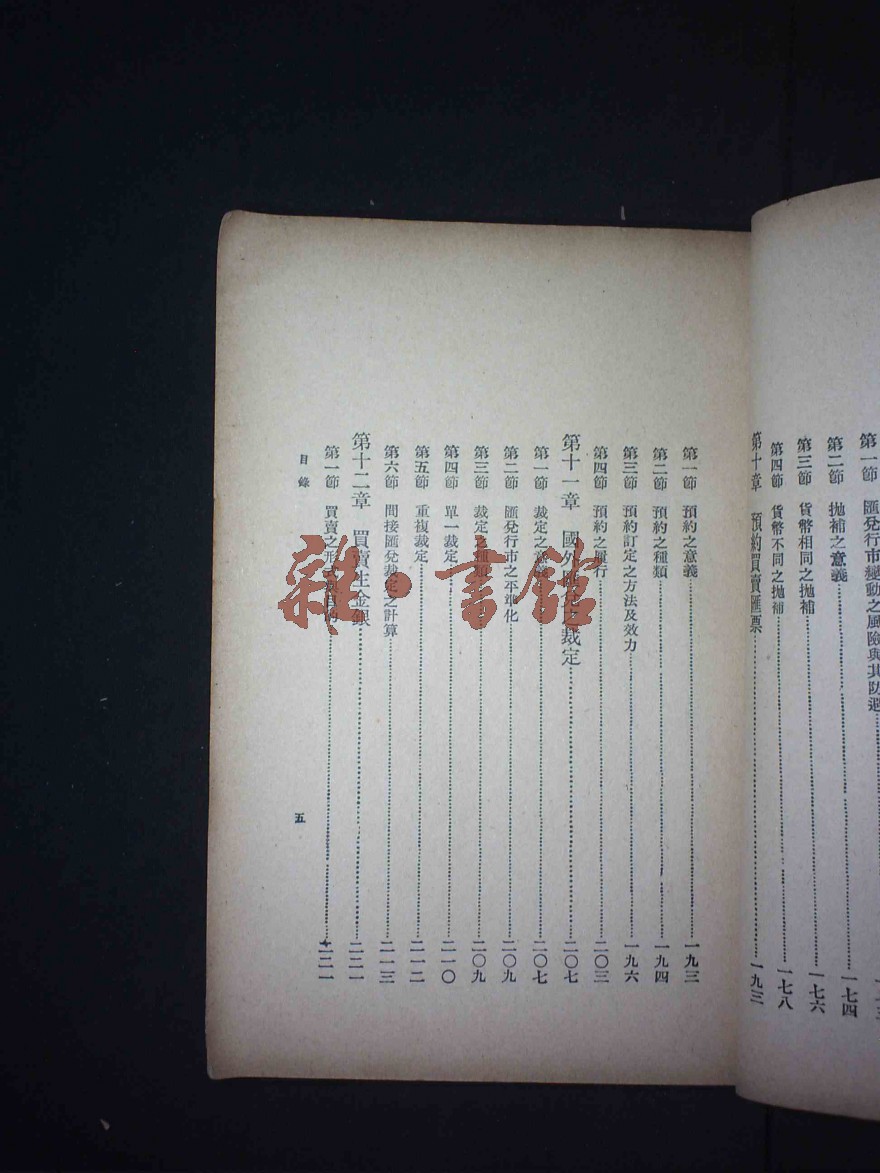 第一節 匯兌行市變動之風險與其防避
第二節 拋補之意義……一七四
第三節 貨幣相同之拋補……一七六
第四節 貨幣不同之拋補……一七八
第十章 預約買賣匯票……一九三
第一節 預約之意義……一九三
第二節 預約之種類……一九四
第三節 預約訂定之方法及效力……一九六
第四節 預約之履行……二〇三
第十一章 國外匯兌之裁定……二〇七
第一節 裁定之意義……二〇七
第二節 匯兌行市之平準化……二〇九
第三節 裁定之種類……二〇九
第四節 單一裁定……二一〇
第五節 重複裁定……二一二
第六節 間接匯兌裁定之計算……二一三
第十二章 買賣生金銀……二二一
第一節 買賣之形式與目的……二二一
目錄
五
雜·書館